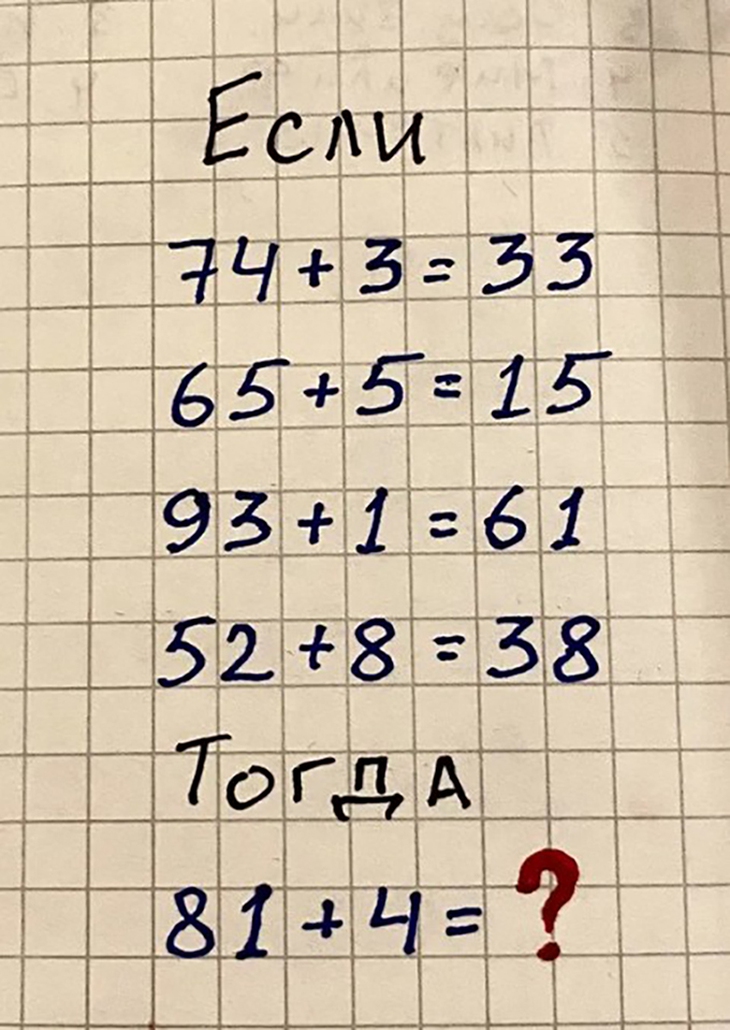 Если
74+3=33
65+5=15
93+1=61
52+8=38
Тогда
81+4=?